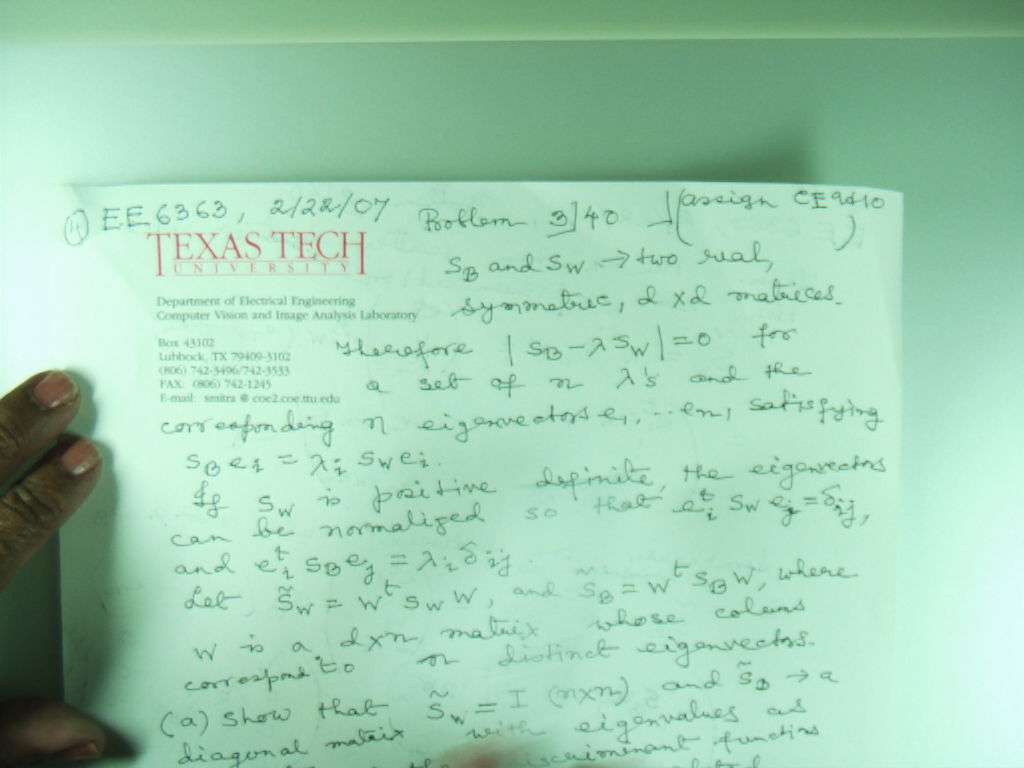 (4) EE 6363, 2/22/07 Problem 3/40 → (assign CE 9d10)
TEXAS TECH
UNIVERSITY
SB and SW → two real,
symmetric, d x d matrices.
Department of Electrical Engineering
Computer Vision and Image Analysis Laboratory
Box 43102
Lubbock, TX 79409-3102
(806) 742-3496/742-3533
FAX: (806) 742-1245
E-mail: smitra @ coe2.coe.ttu.edu
Therefore | SB - λ SW | = 0 for
a set of n λ's and the
corresponding n eigenvectors e1, .. en, satisfying
SB ei = λi SW ei.
If SW is positive definite, the eigenvectors
can be normalized so that eit SW ej = δij,
and eit SB ej = λi δij.
Let S̃W = Wt SW W, and S̃B = Wt SB W, where
W is a dxn matrix whose colums
correspond to n distinct eigenvectors.
(a) Show that S̃W = I (nxn) and S̃B → a
diagonal matrix with eigenvalues as
the discriminant functins